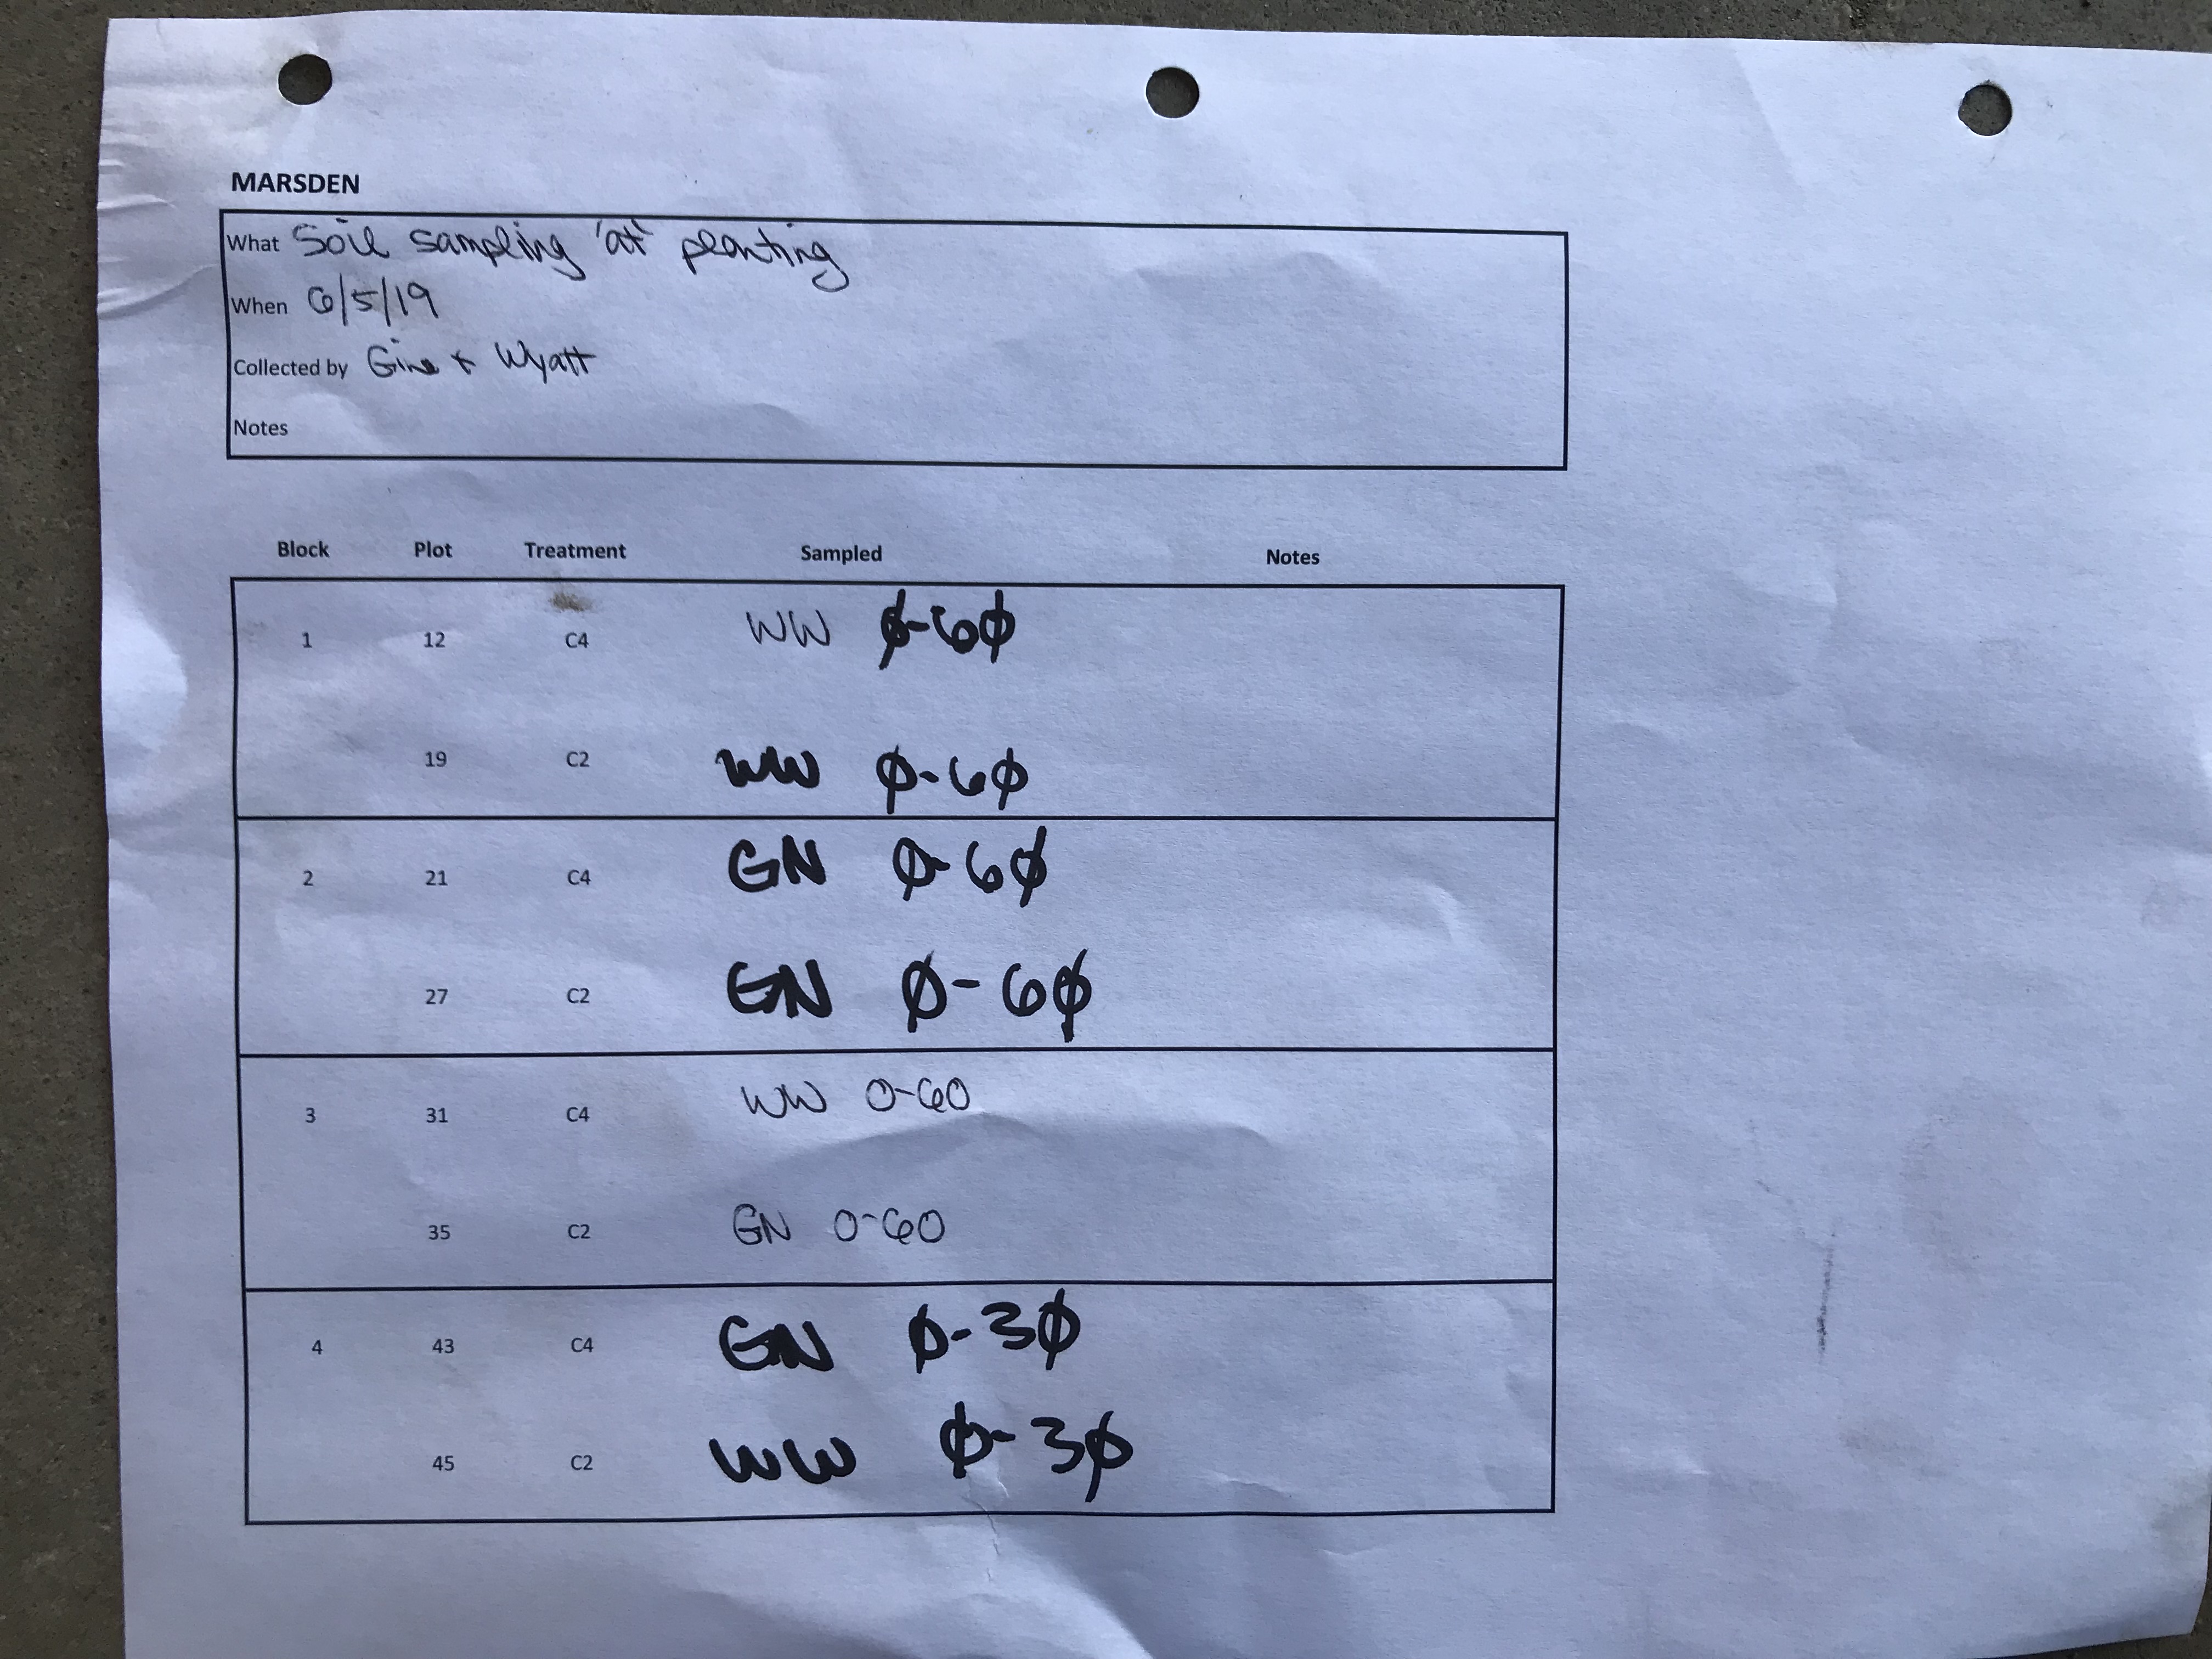 MARSDEN
What Soil sampling 'at' planting
When 6/5/19
Collected by Gina + Wyatt
Notes
Block Plot Treatment Sampled Notes
1 12 C4 WW Ø-6Ø
19 C2 WW Ø-6Ø
2 21 C4 GN Ø-6Ø
27 C2 GN Ø-6Ø
3 31 C4 WW 0-60
35 C2 GN 0-60
4 43 C4 GN Ø-3Ø
45 C2 WW Ø-3Ø